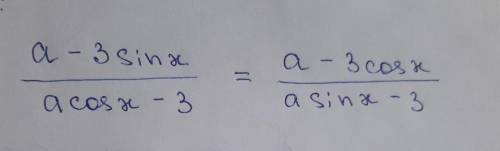 a - 3 sin x / a cos x - 3 = a - 3 cos x / a sin x - 3